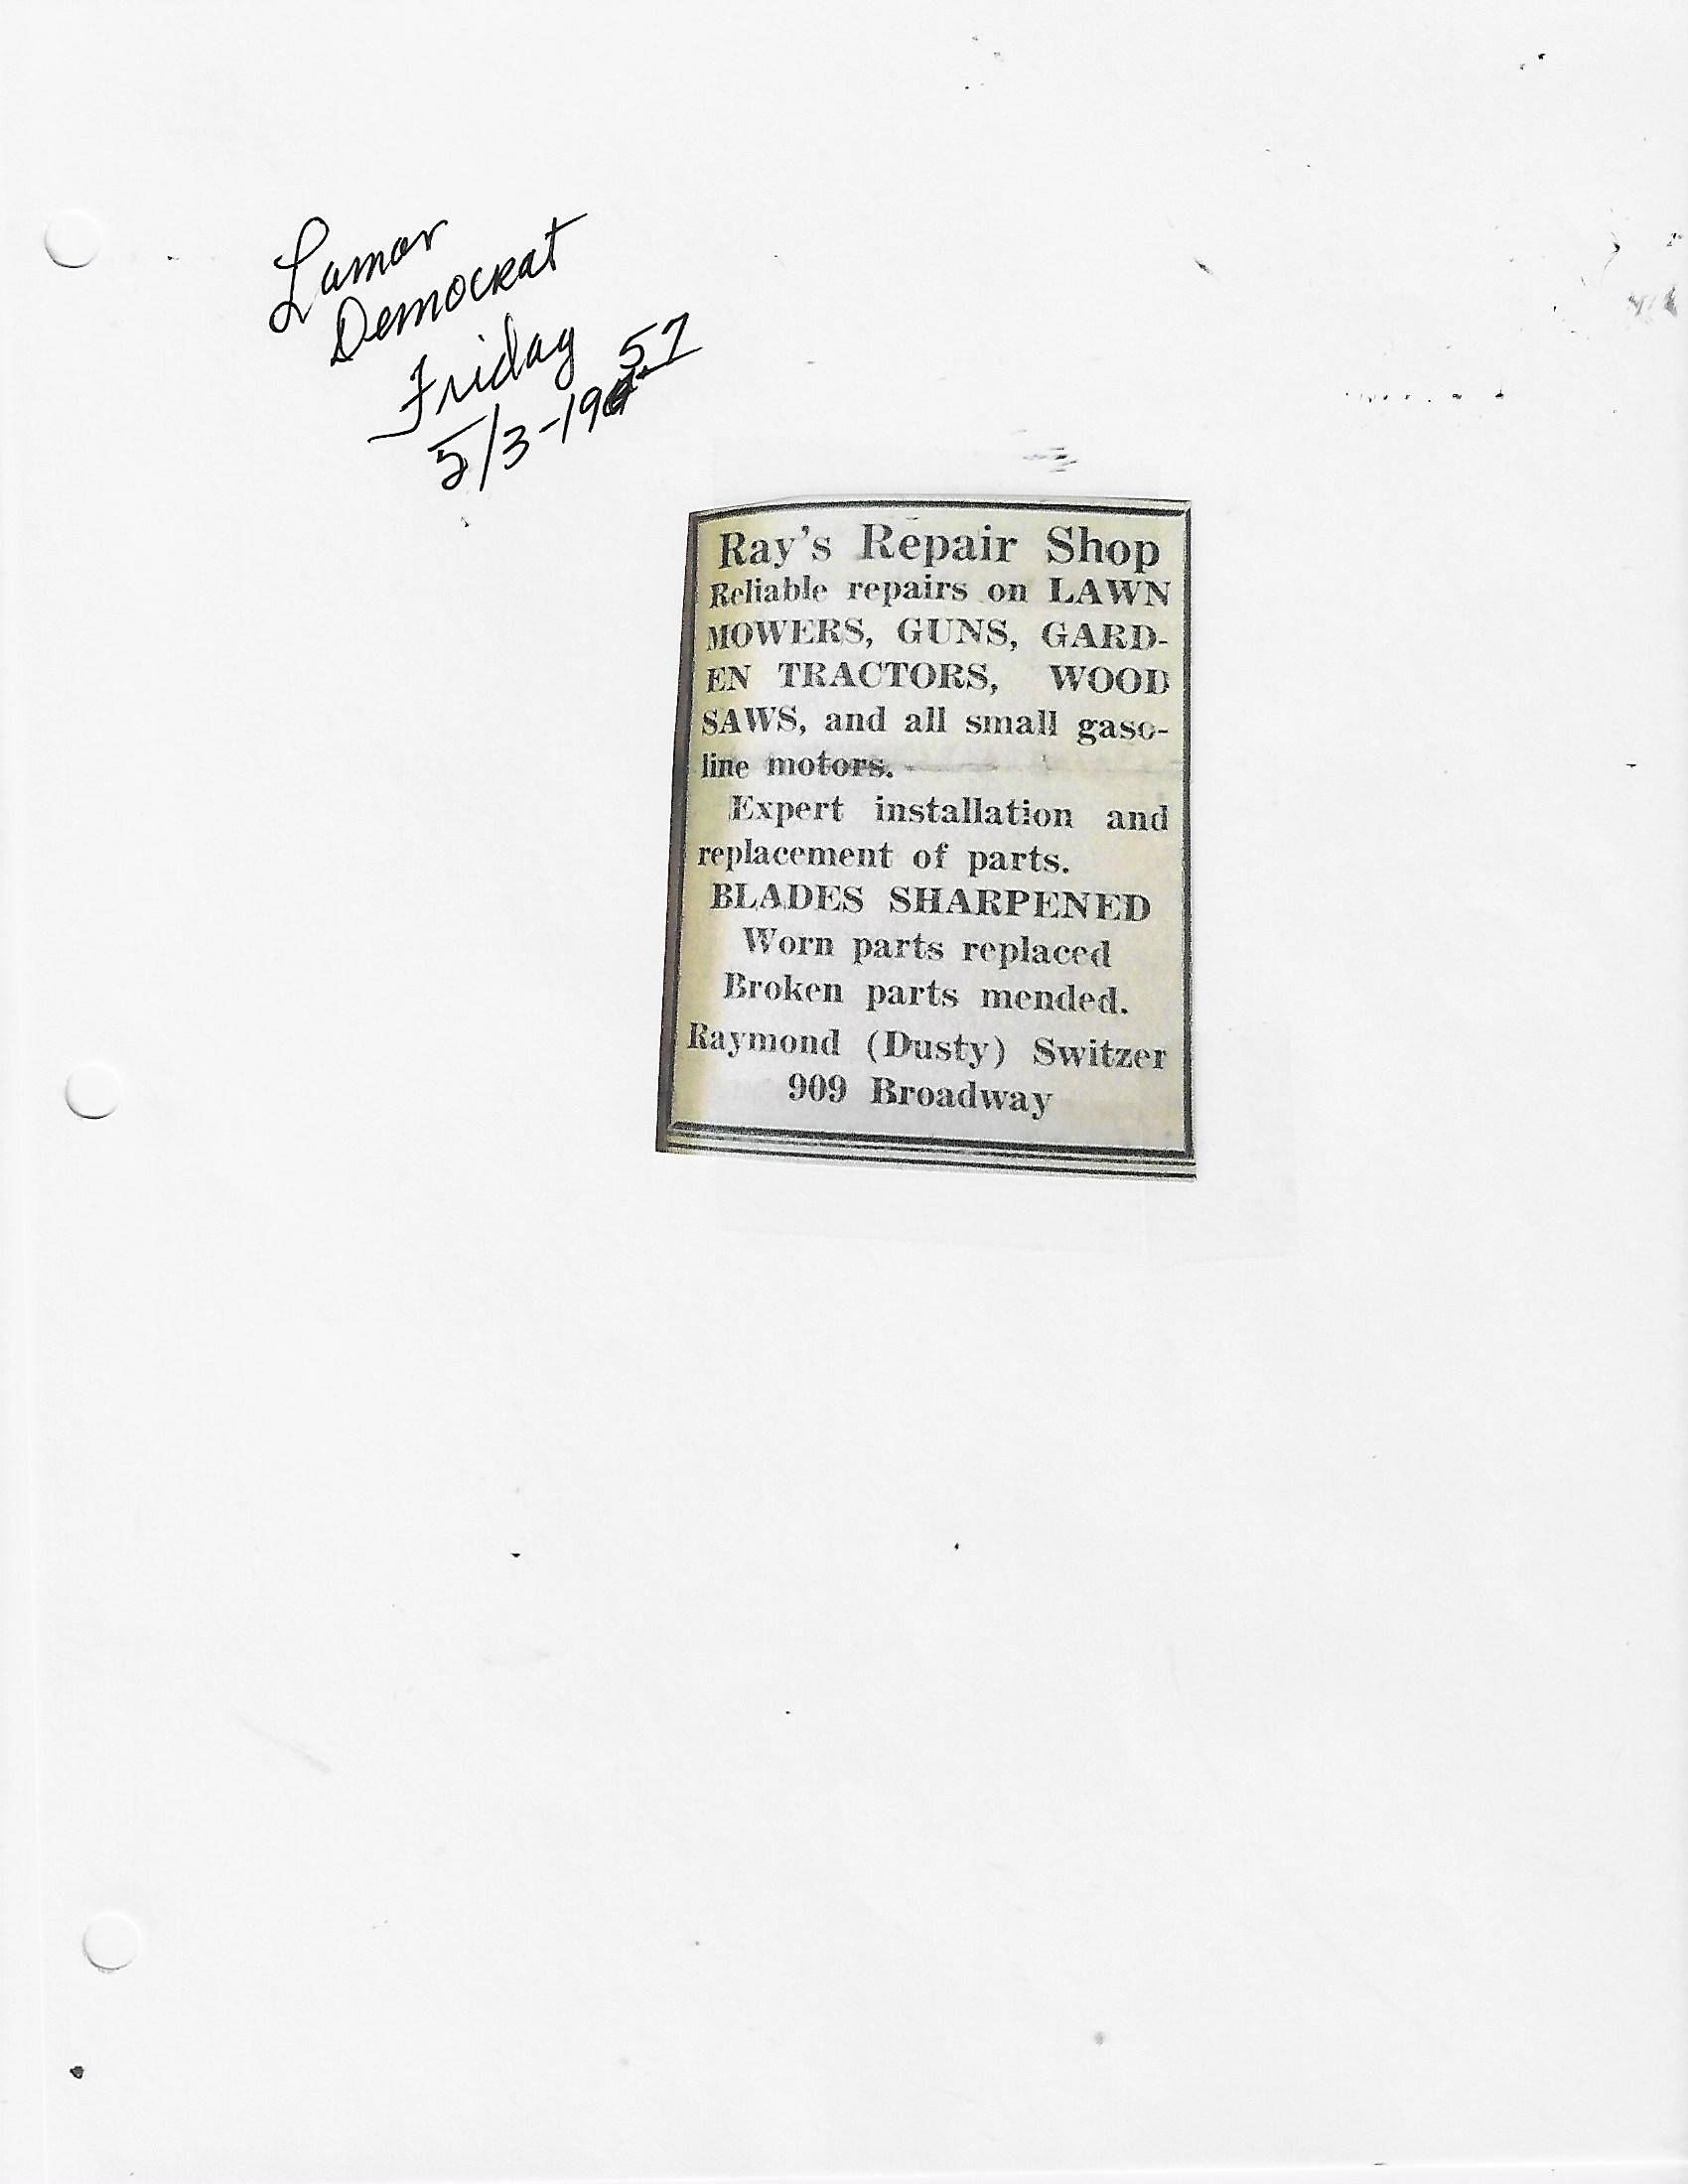 Lamar
Democrat
Friday
5/3-1957
Ray's Repair Shop
Reliable repairs on LAWN
MOWERS, GUNS, GARD-
EN TRACTORS, WOOD
SAWS, and all small gaso-
line motors.
Expert installation and
replacement of parts.
BLADES SHARPENED
Worn parts replaced
Broken parts mended.
Raymond (Dusty) Switzer
909 Broadway